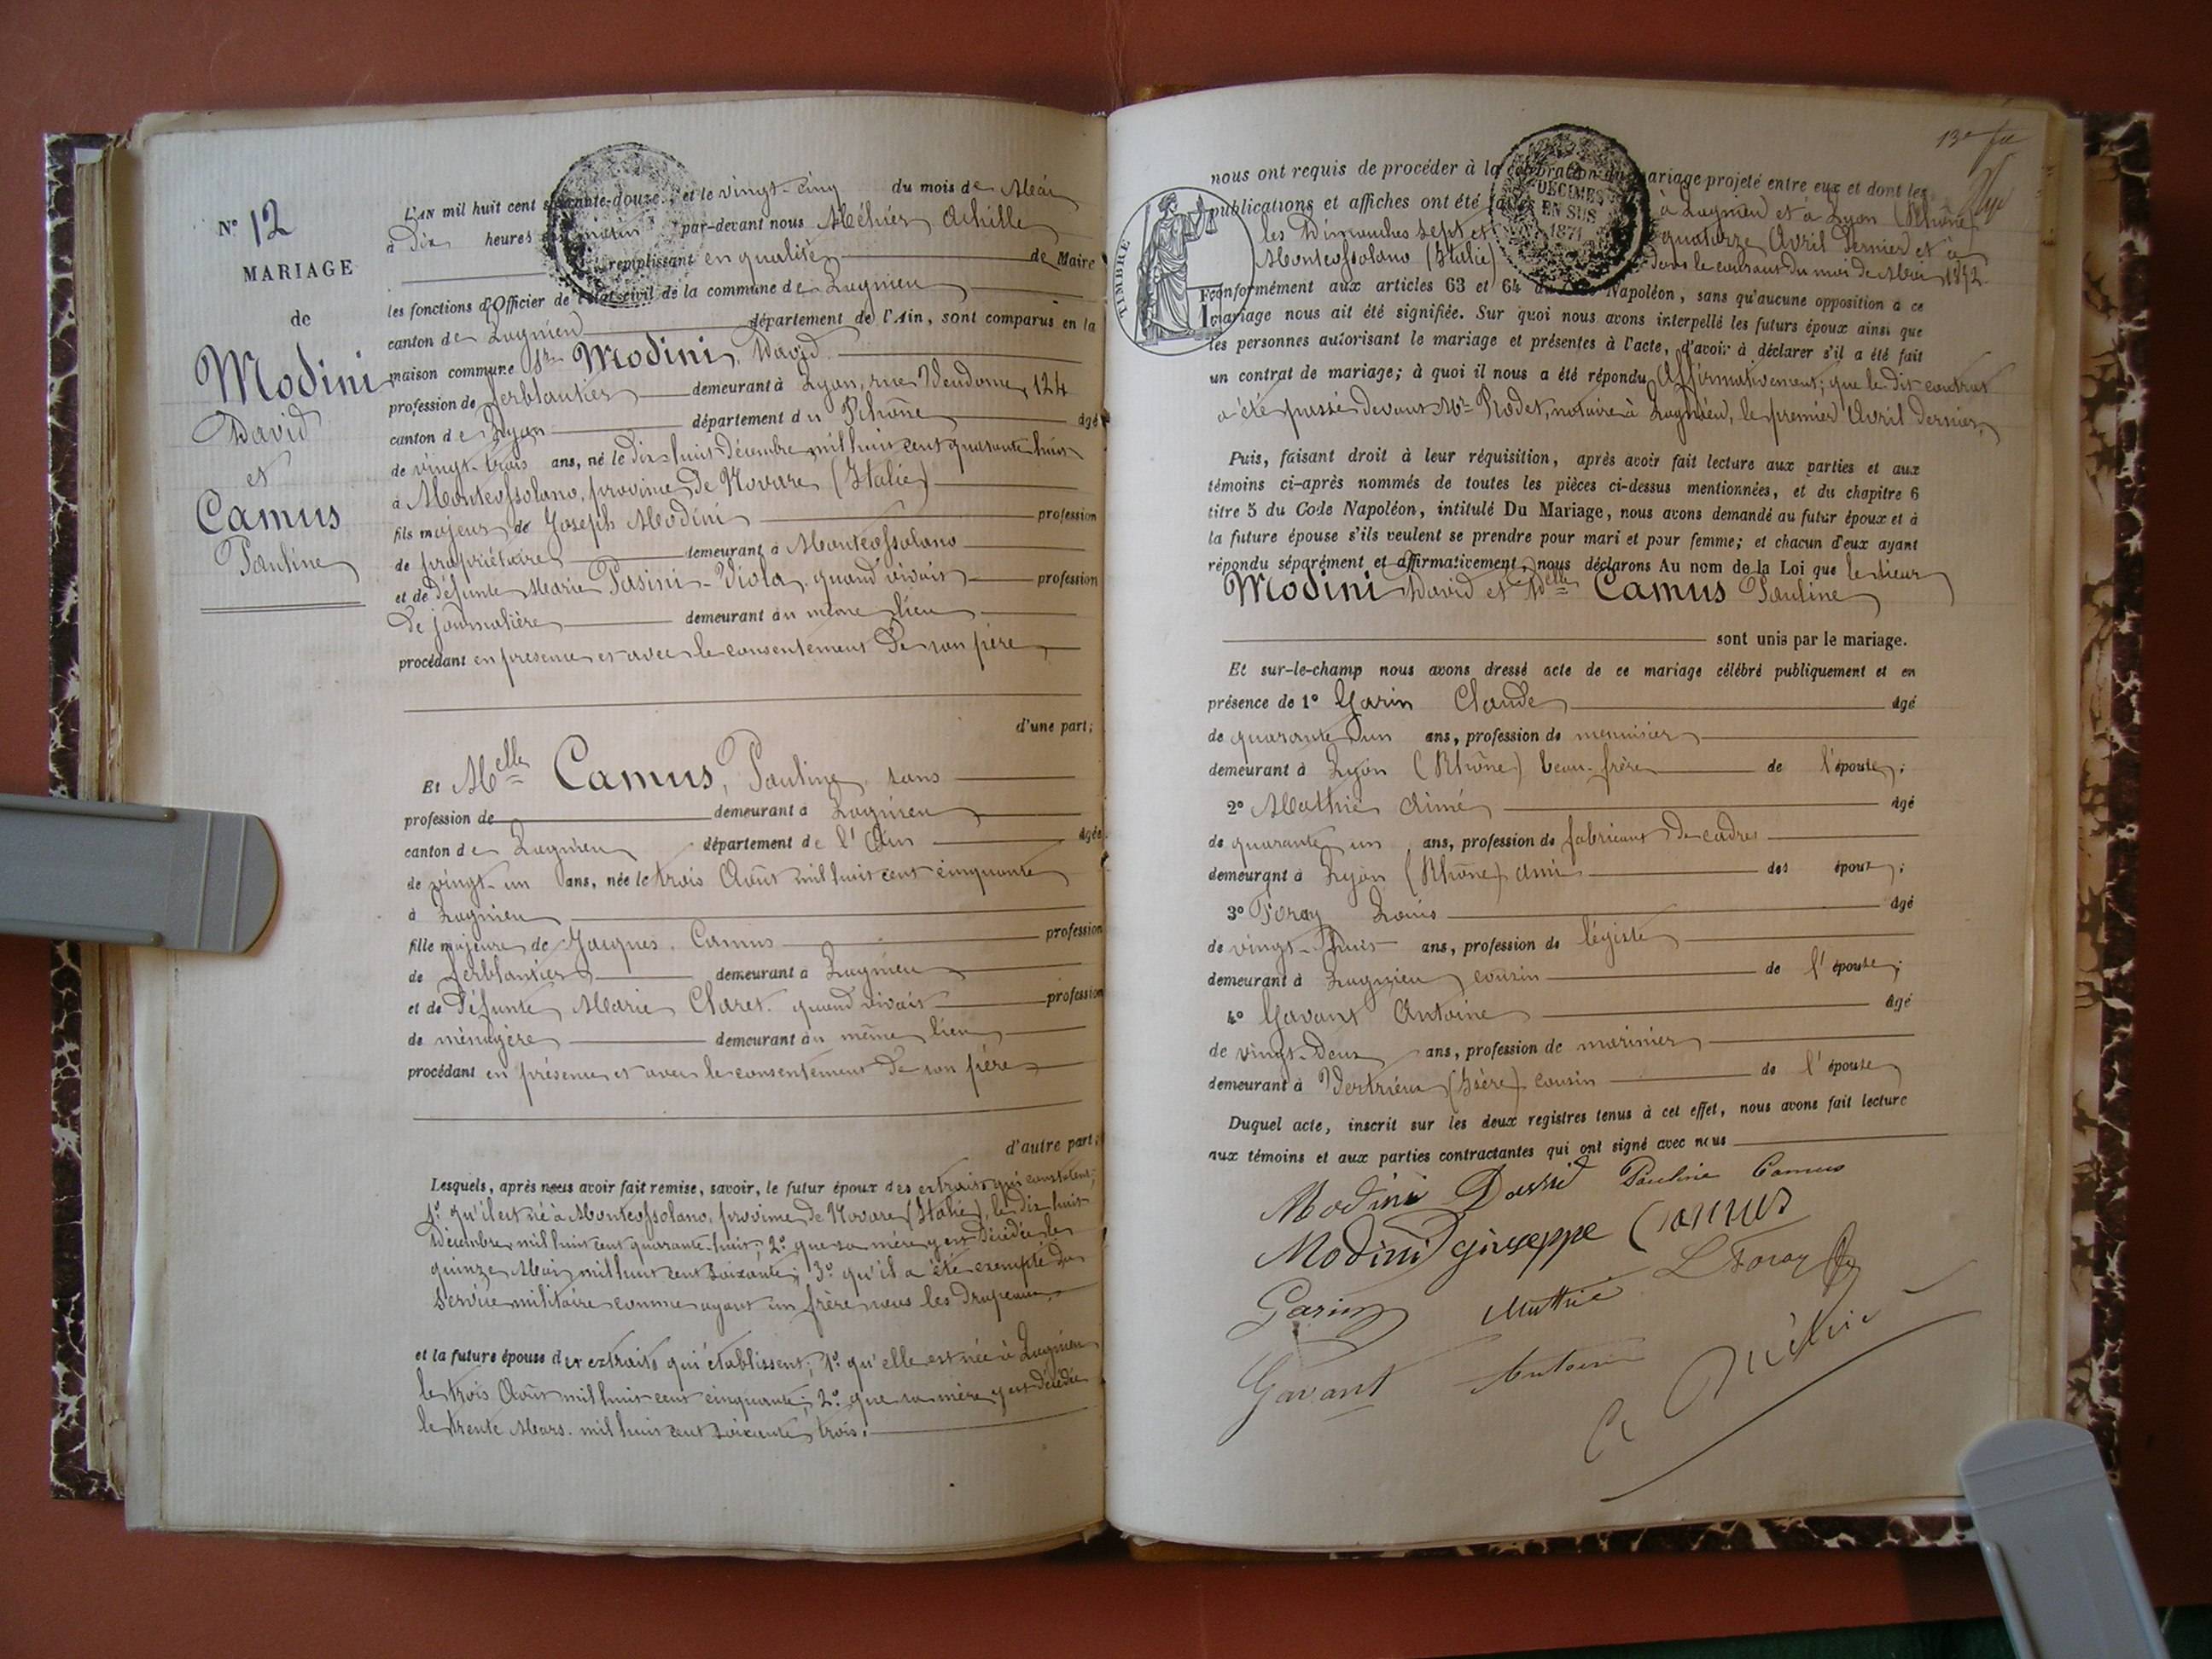 N° 12
MARIAGE
de
Modini
David
et
Camus
Pauline
L'AN mil huit cent soixante-douze, et le vingt-cinq du mois de Mai
à Dix heures du matin par-devant nous Méhier Achille
remplissant en qualité de Maire
les fonctions d'Officier de l'état-civil de la commune de Lagnieu
canton de Lagnieu département de l'Ain, sont comparus en la
maison commune Sr Modini, David
profession de ferblantier demeurant à Lyon, rue Vendome, 124
canton de Lyon département du Rhône âgé
de vingt-trois ans, né le dix-huit décembre mil huit cent quarante huit
à Monteossolano, province de Novare (Italie)
fils majeur de Joseph Modini profession
de propriétaire demeurant à Monteossolano
et de défunte Marie Pasini-Viola, quand vivait profession
de journalière demeurant au même lieu
procédant en présence et avec le consentement de son père
d'une part;
Et Melle Camus, Pauline, sans
profession de demeurant à Lagnieu
canton de Lagnieu département de l'Ain âgée
de vingt-un ans, née le trois Août mil huit cent cinquante
à Lagnieu
fille majeure de Jacques Camus profession
de ferblantier demeurant à Lagnieu
et de défunte Marie Claret quand vivait profession
de ménagère demeurant au même lieu
procédant en présence et avec le consentement de son père
d'autre part;
Lesquels, après nous avoir fait remise, savoir, le futur époux des extraits qui constatent;
1° qu'il est né à Monteossolano, province de Novare (Italie), le dix huit
Décembre mil huit cent quarante-huit; 2° que sa mère y est décédée le
quinze Mai mil huit cent soixante; 3° qu'il a été exempté du
service militaire comme ayant un frère sous les drapeaux.
et la future épouse des extraits qui établissent; 1° qu'elle est née à Lagnieu
le trois Août mil huit cent cinquante; 2° que sa mère y est décédée
le trente Mars mil huit cent soixante trois.
13e
nous ont requis de procéder à la célébration du mariage projeté entre eux et dont les
publications et affiches ont été à Lagnieu et à Lyon (Rhône)
les Dimanches sept et quatorze Avril dernier et à
Monteossolano (Italie) dans le courant du mois de Mai 1872
DÉCIMES
EN SUS
1871
TIMBRE
conformément aux articles 63 et 64 du Code Napoléon, sans qu'aucune opposition à ce
mariage nous ait été signifiée. Sur quoi nous avons interpellé les futurs époux ainsi que
les personnes autorisant le mariage et présentes à l'acte, d'avoir à déclarer s'il a été fait
un contrat de mariage; à quoi il nous a été répondu Affirmativement; que le dit contrat
a été passé devant Me Rodet, notaire à Lagnieu, le premier Avril dernier,
Puis, faisant droit à leur réquisition, après avoir fait lecture aux parties et aux
témoins ci-après nommés de toutes les pièces ci-dessus mentionnées, et du chapitre 6
titre 5 du Code Napoléon, intitulé Du Mariage, nous avons demandé au futur époux et à
la future épouse s'ils veulent se prendre pour mari et pour femme; et chacun d'eux ayant
répondu séparément et affirmativement, nous déclarons Au nom de la Loi que le sieur
Modini David et Delle Camus Pauline
sont unis par le mariage.
Et sur-le-champ nous avons dressé acte de ce mariage célébré publiquement et en
présence de 1° Garin Claude âgé
de quarante un ans, profession de menuisier
demeurant à Lyon (Rhône) beau-frère de l'épouse;
2° Mathie Aimé âgé
de quarante un ans, profession de fabricant de cadres
demeurant à Lyon (Rhône) ami des époux;
3° Foray Louis âgé
de vingt-huit ans, profession de légiste
demeurant à Lagnieu cousin de l'épouse;
4° Gavant Antoine âgé
de vingt-deux ans, profession de marinier
demeurant à Vertrieu (Isère) cousin de l'épouse
Duquel acte, inscrit sur les deux registres tenus à cet effet, nous avons fait lecture
aux témoins et aux parties contractantes qui ont signé avec nous
Modini David Pauline Camus
Modini Giuseppe Camus
Garin Mathie L Foray
Gavant Antoine A Méhier